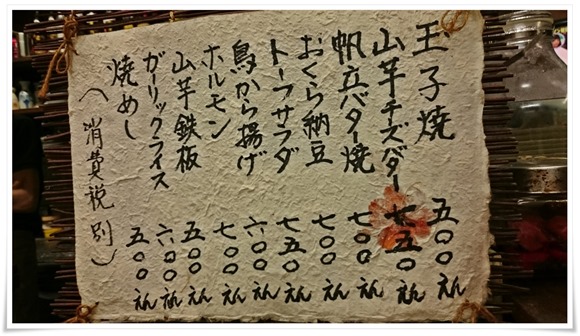 玉子焼 五〇〇えん
山芋チーズバター 七五〇えん
帆立バター焼 七〇〇えん
おくら納豆 七〇〇えん
トーフサラダ 七五〇えん
鳥から揚げ 六〇〇えん
ホルモン 七〇〇えん
山芋鉄板 五〇〇えん
ガーリックライス 六〇〇えん
焼めし 五〇〇えん
(消費税別)